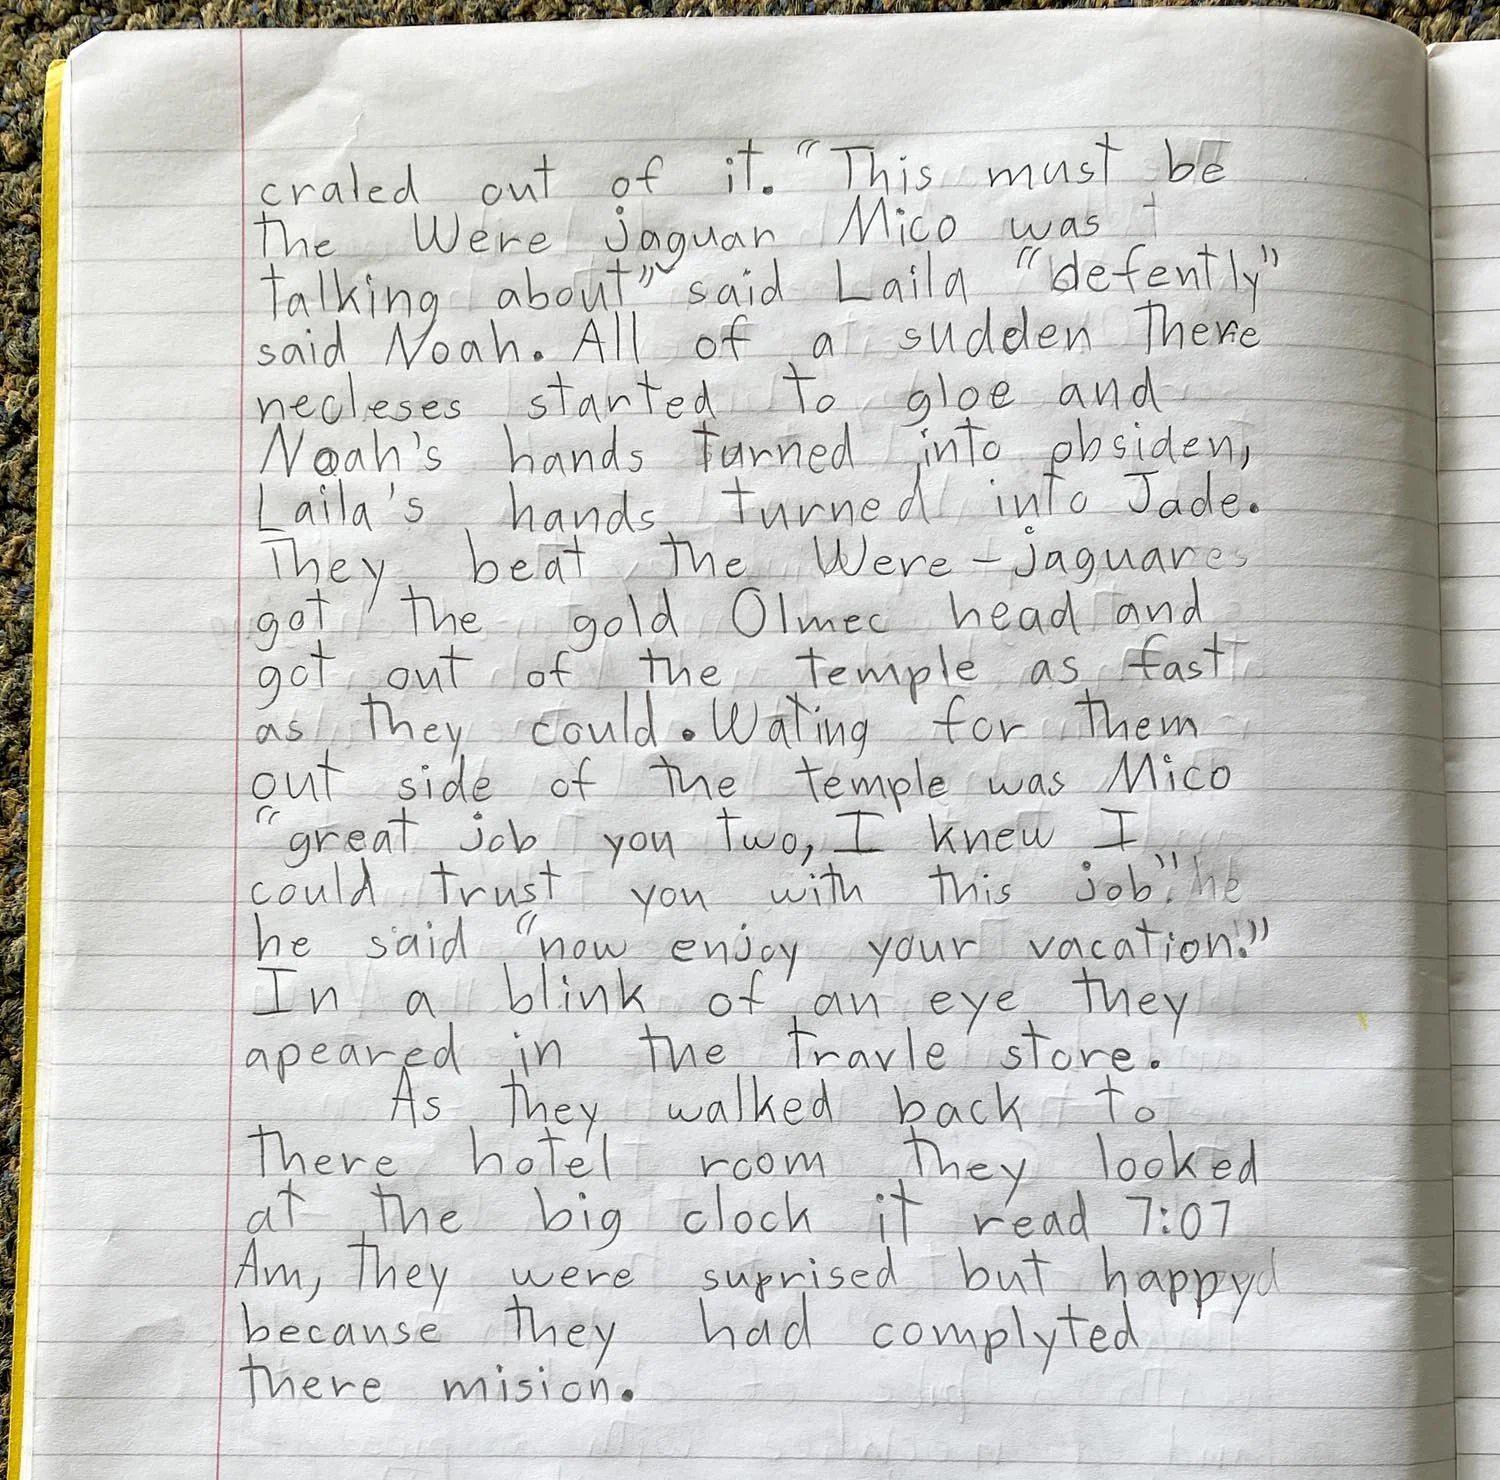 craled out of it. "This must be
the Were jaguar Mico was
talking about" said Laila "defently"
said Noah. All of a sudden there
necleses started to gloe and
Noah's hands turned into obsiden,
Laila's hands turned into Jade.
They beat the Were-jaguares
got the gold Olmec head and
got out of the temple as fast
as they could. Wating for them
out side of the temple was Mico
"great job you two, I knew I
could trust you with this job." he
he said "now enjoy your vacation."
In a blink of an eye they
apeared in the travle store.
As they walked back to
there hotel room they looked
at the big clock it read 7:07
Am, they were suprised but happy
because they had complyted
there mision.